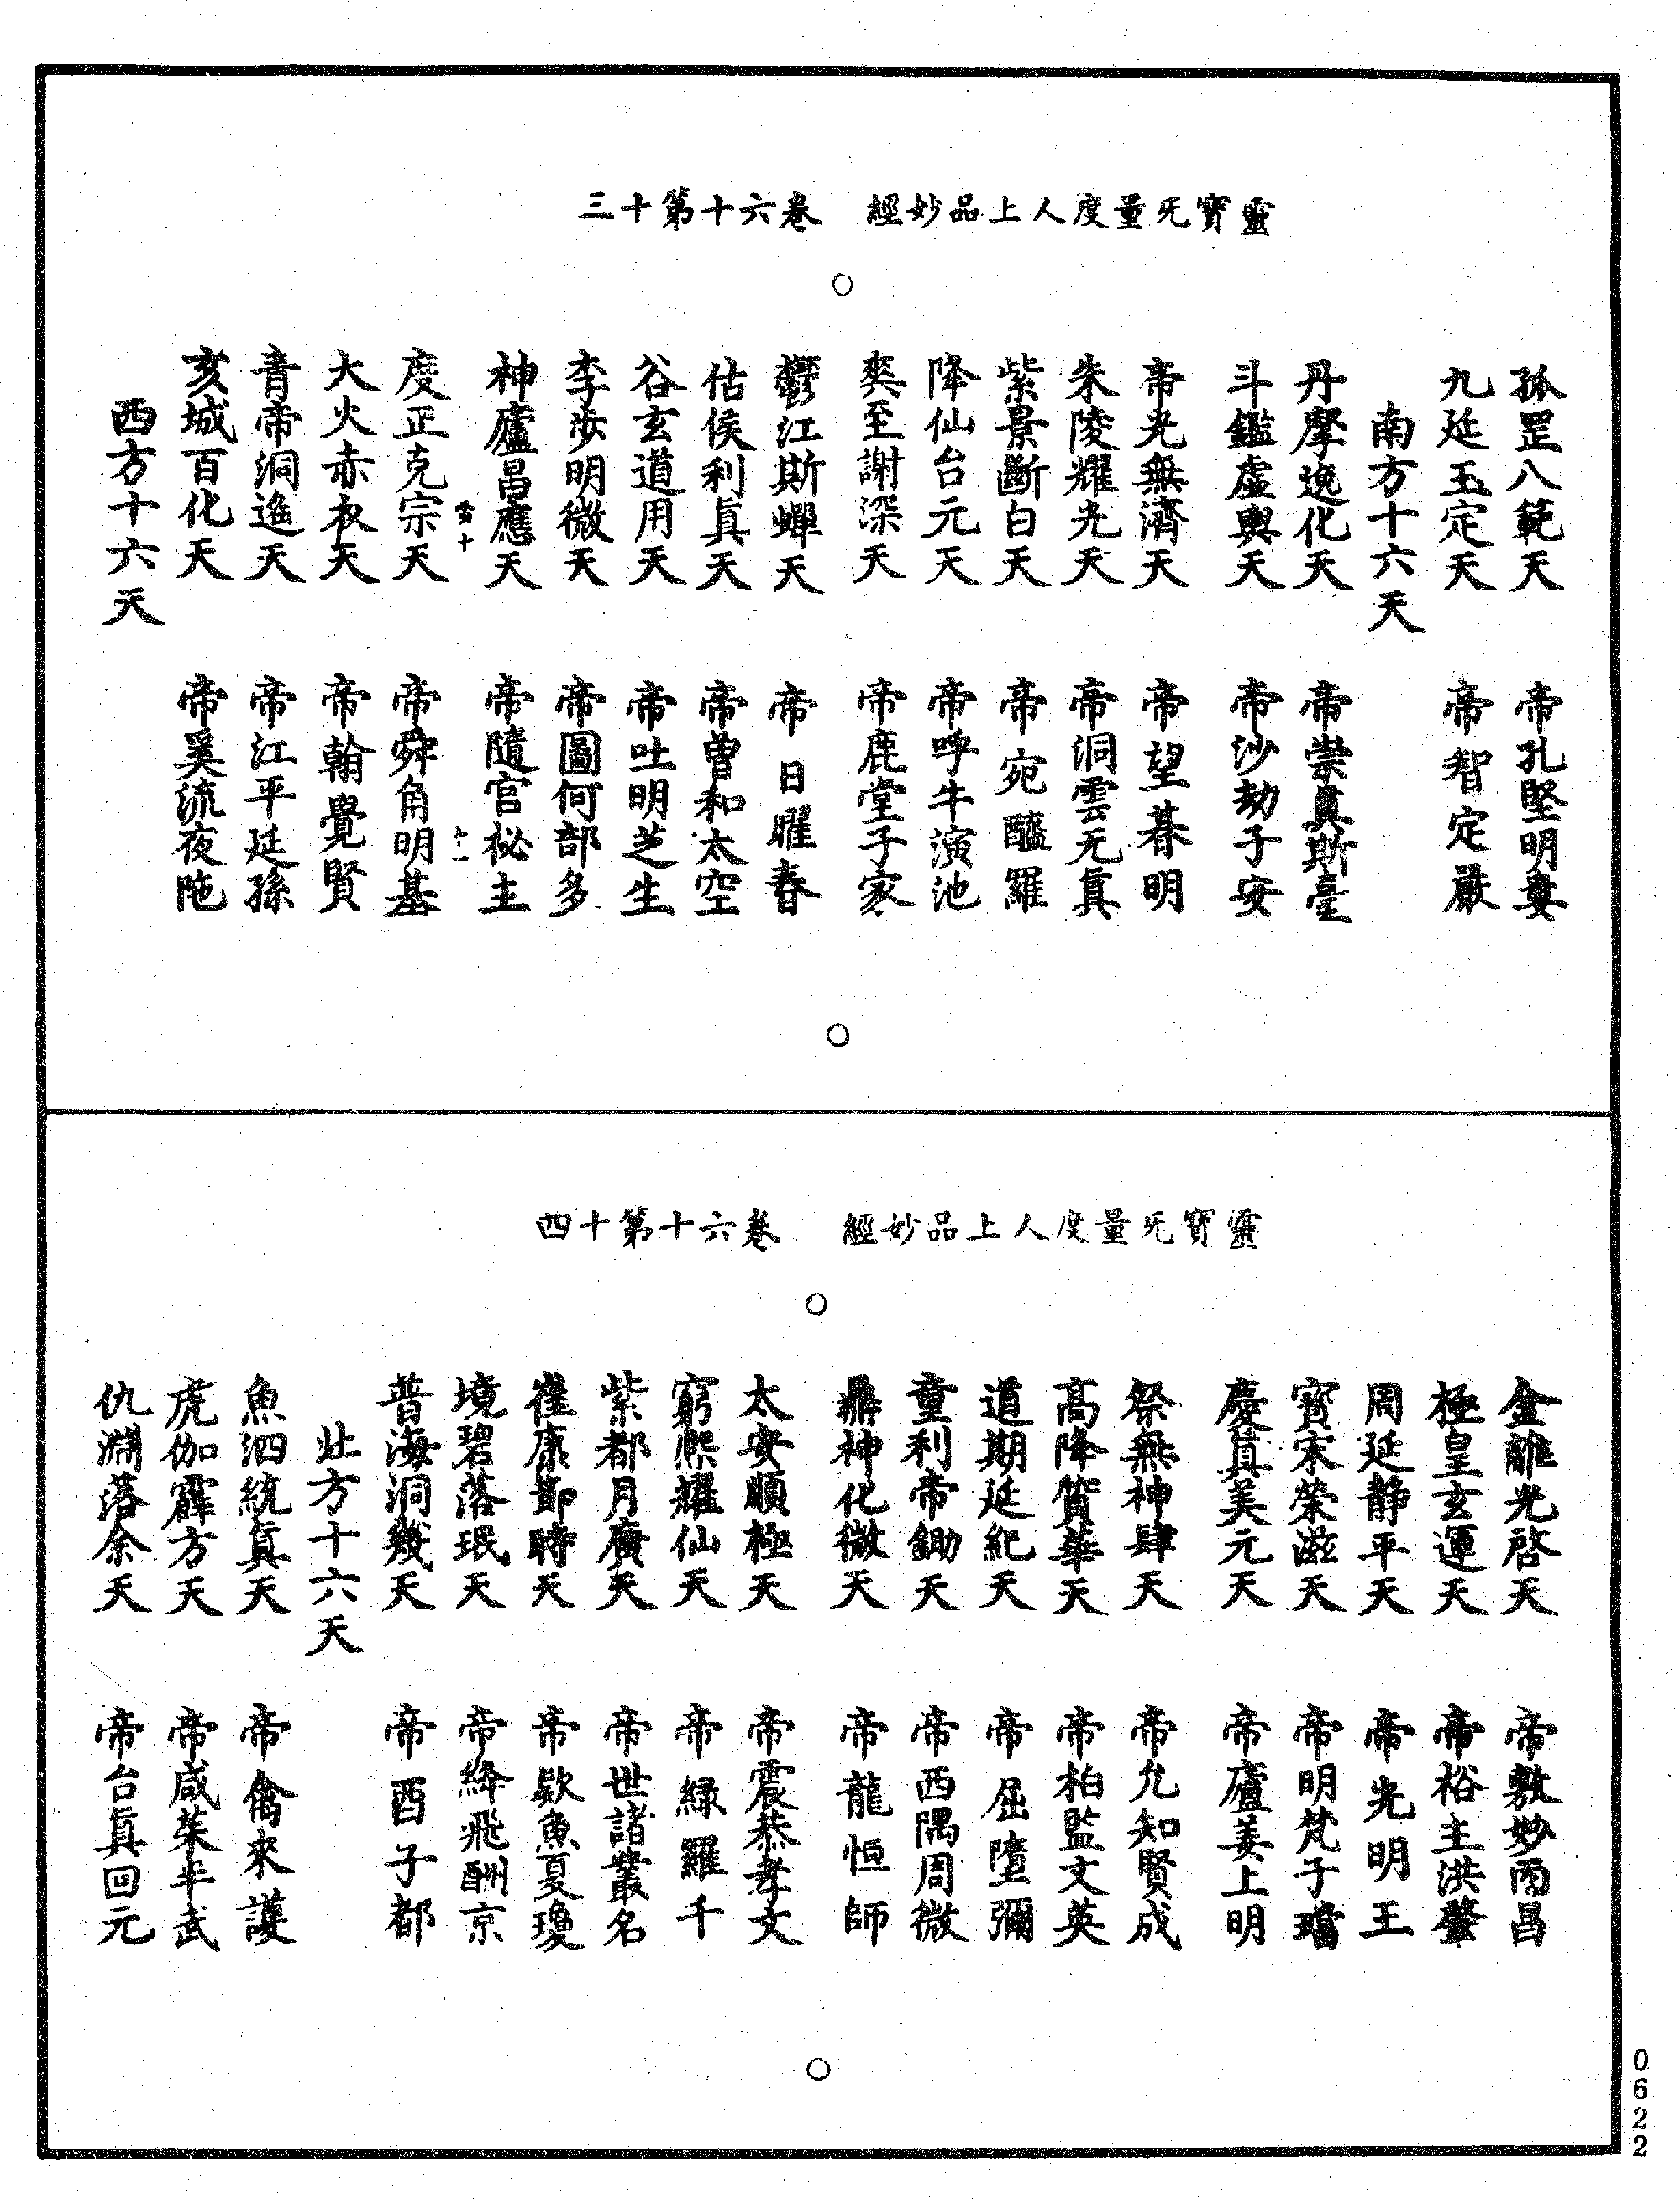 靈寶无量度人上品妙經　卷六十第十三
孤罡八範天　帝孔堅明婁
九延玉定天　帝智定嚴
南方十六天
丹摩逸化天　帝崇眞斯臺
斗鑑虛輿天　帝沙劫子安
帝光無濟天　帝望暮明
朱陵耀光天　帝洞雲无眞
紫景斷白天　帝宛醯羅
降仙台元天　帝呼牛演池
奕至謝深天　帝鹿堂子家
鬱江斯蟬天　帝日曜春
估侯利眞天　帝曾和太空
谷玄道用天　帝吐明芝生
李步明微天　帝圖何部多
神廬昌應天　帝隨官祕主
度正克宗天　帝舜角明基
大火赤权天　帝翰覺賢
青帝洞遙天　帝江平延孫
亥城百化天　帝奚流夜陁
西方十六天
靈寶无量度人上品妙經　卷六十第十四
金離光啓天　帝敷妙丙昌
極皇玄運天　帝裕主洪肇
周延靜平天　帝光明王
寶宋榮滋天　帝明梵子璿
慶眞美元天　帝廬姜上明
祭無神肆天　帝允知賢成
高降質華天　帝柏監文英
道期延紀天　帝屈墮彌
童利帝鋤天　帝西隅周微
鼎神化微天　帝龍恒師
太安順極天　帝震恭孝文
窮熙耀仙天　帝緑羅千
紫都月廣天　帝世諸叢名
崔康節時天　帝歘魚夏瓊
境碧落珉天　帝絳飛酬京
普海洞幾天　帝酉子都
北方十六天
魚泗統眞天　帝禽來護
虎伽霹方天　帝咸茱半武
仇淵落余天　帝台眞回元
0622